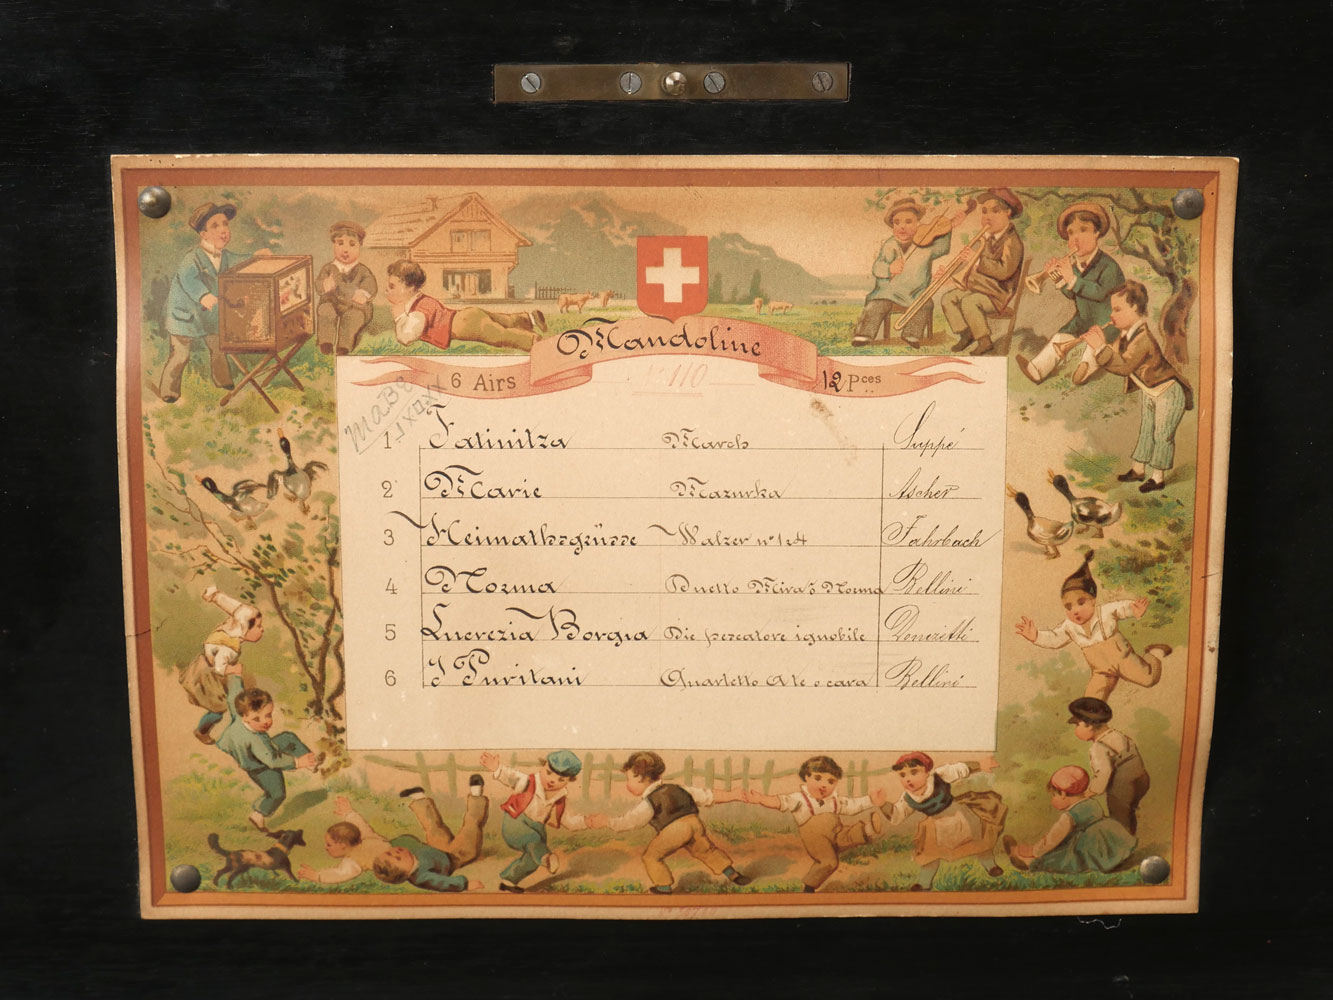 Mandoline
6 Airs 110 12 Pces
1 Fatinitza March Suppé
2 Marie Mazurka Ascher
3 Heimathsgrüsse Walzer No 1 & 4 Fahrbach
4 Norma Duetto Mira o Norma Bellini
5 Lucrezia Borgia Die pescatore ignobile Donizetti
6 I Puritani Quartetto A te o cara Bellini